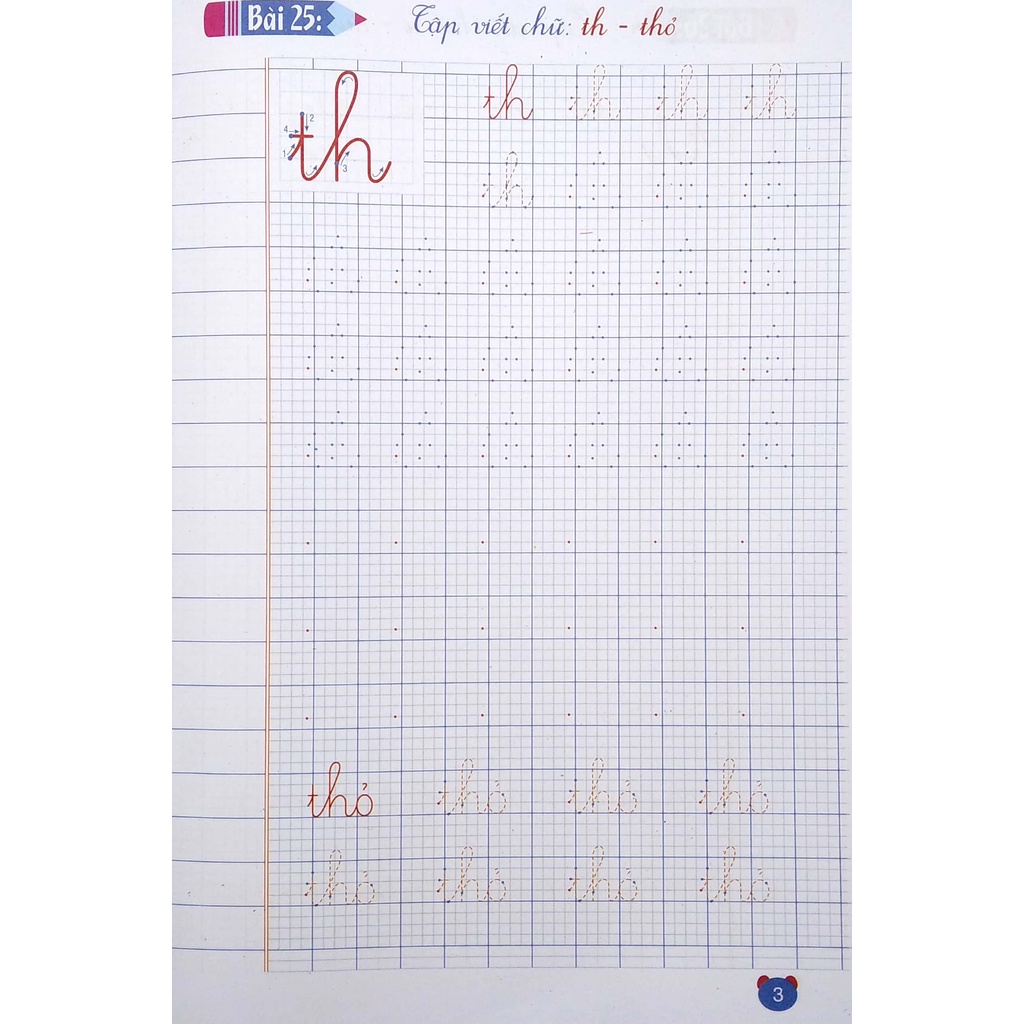 Bài 25: Tập viết chữ: th - thỏ
th th th th th
4 2 1 3
th
thỏ thỏ thỏ thỏ
thỏ thỏ thỏ thỏ
3